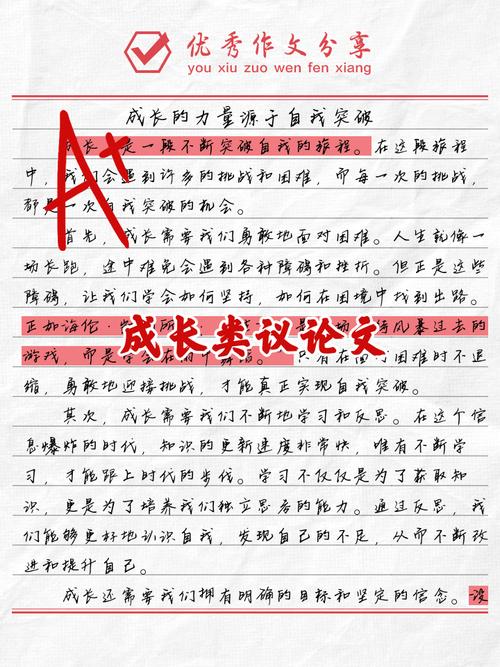 优秀作文分享
you xiu zuo wen fen xiang
成长的力量源于自我突破
A+
成长 是一段不断突破自我的旅程。在这段旅程
中,我们会遇到许多的挑战和困难,而每一次的挑战,
都是一次自我突破的机会。
首先,成长需要我们勇敢地面对困难。人生就像一
场长跑,途中难免会遇到各种障碍和挫折。但正是这些
障碍,让我们学会如何坚持,如何在困境中找到出路。
正如海伦·
所
场
待风暴过去的
成长类议论文
游戏,而是学会在雨中舞蹈。
只有在面对困难时不退
缩,勇敢地迎接挑战,才能真正实现自我突破。
其次,成长需要我们不断地学习和反思。在这个信
息爆炸的时代,知识的更新速度非常快,唯有不断学
习,才能跟上时代的步伐。学习不仅仅是为了获取知
识,更是为了培养我们独立思考的能力。通过反思,我
们能够更好地认识自我,发现自己的不足,从而不断改
进和提升自己。
成长还需要我们拥有明确的目标和坚定的信念。没